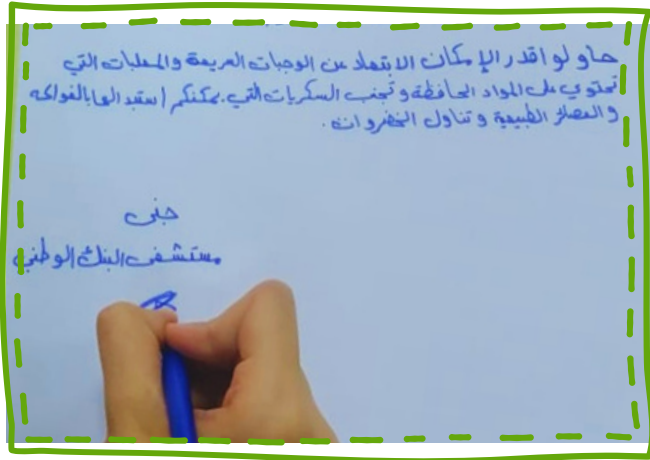 حاولوا قدر الإمكان الابتعاد عن الوجبات السريعة والمعلبات التي
تحتوي على المواد الحافظة وتجنب السكريات التي يمكنكم استبدالها بالفواكه
والعصائر الطبيعية وتناول الخضروات.
جنى
مستشفى البنك الوطني